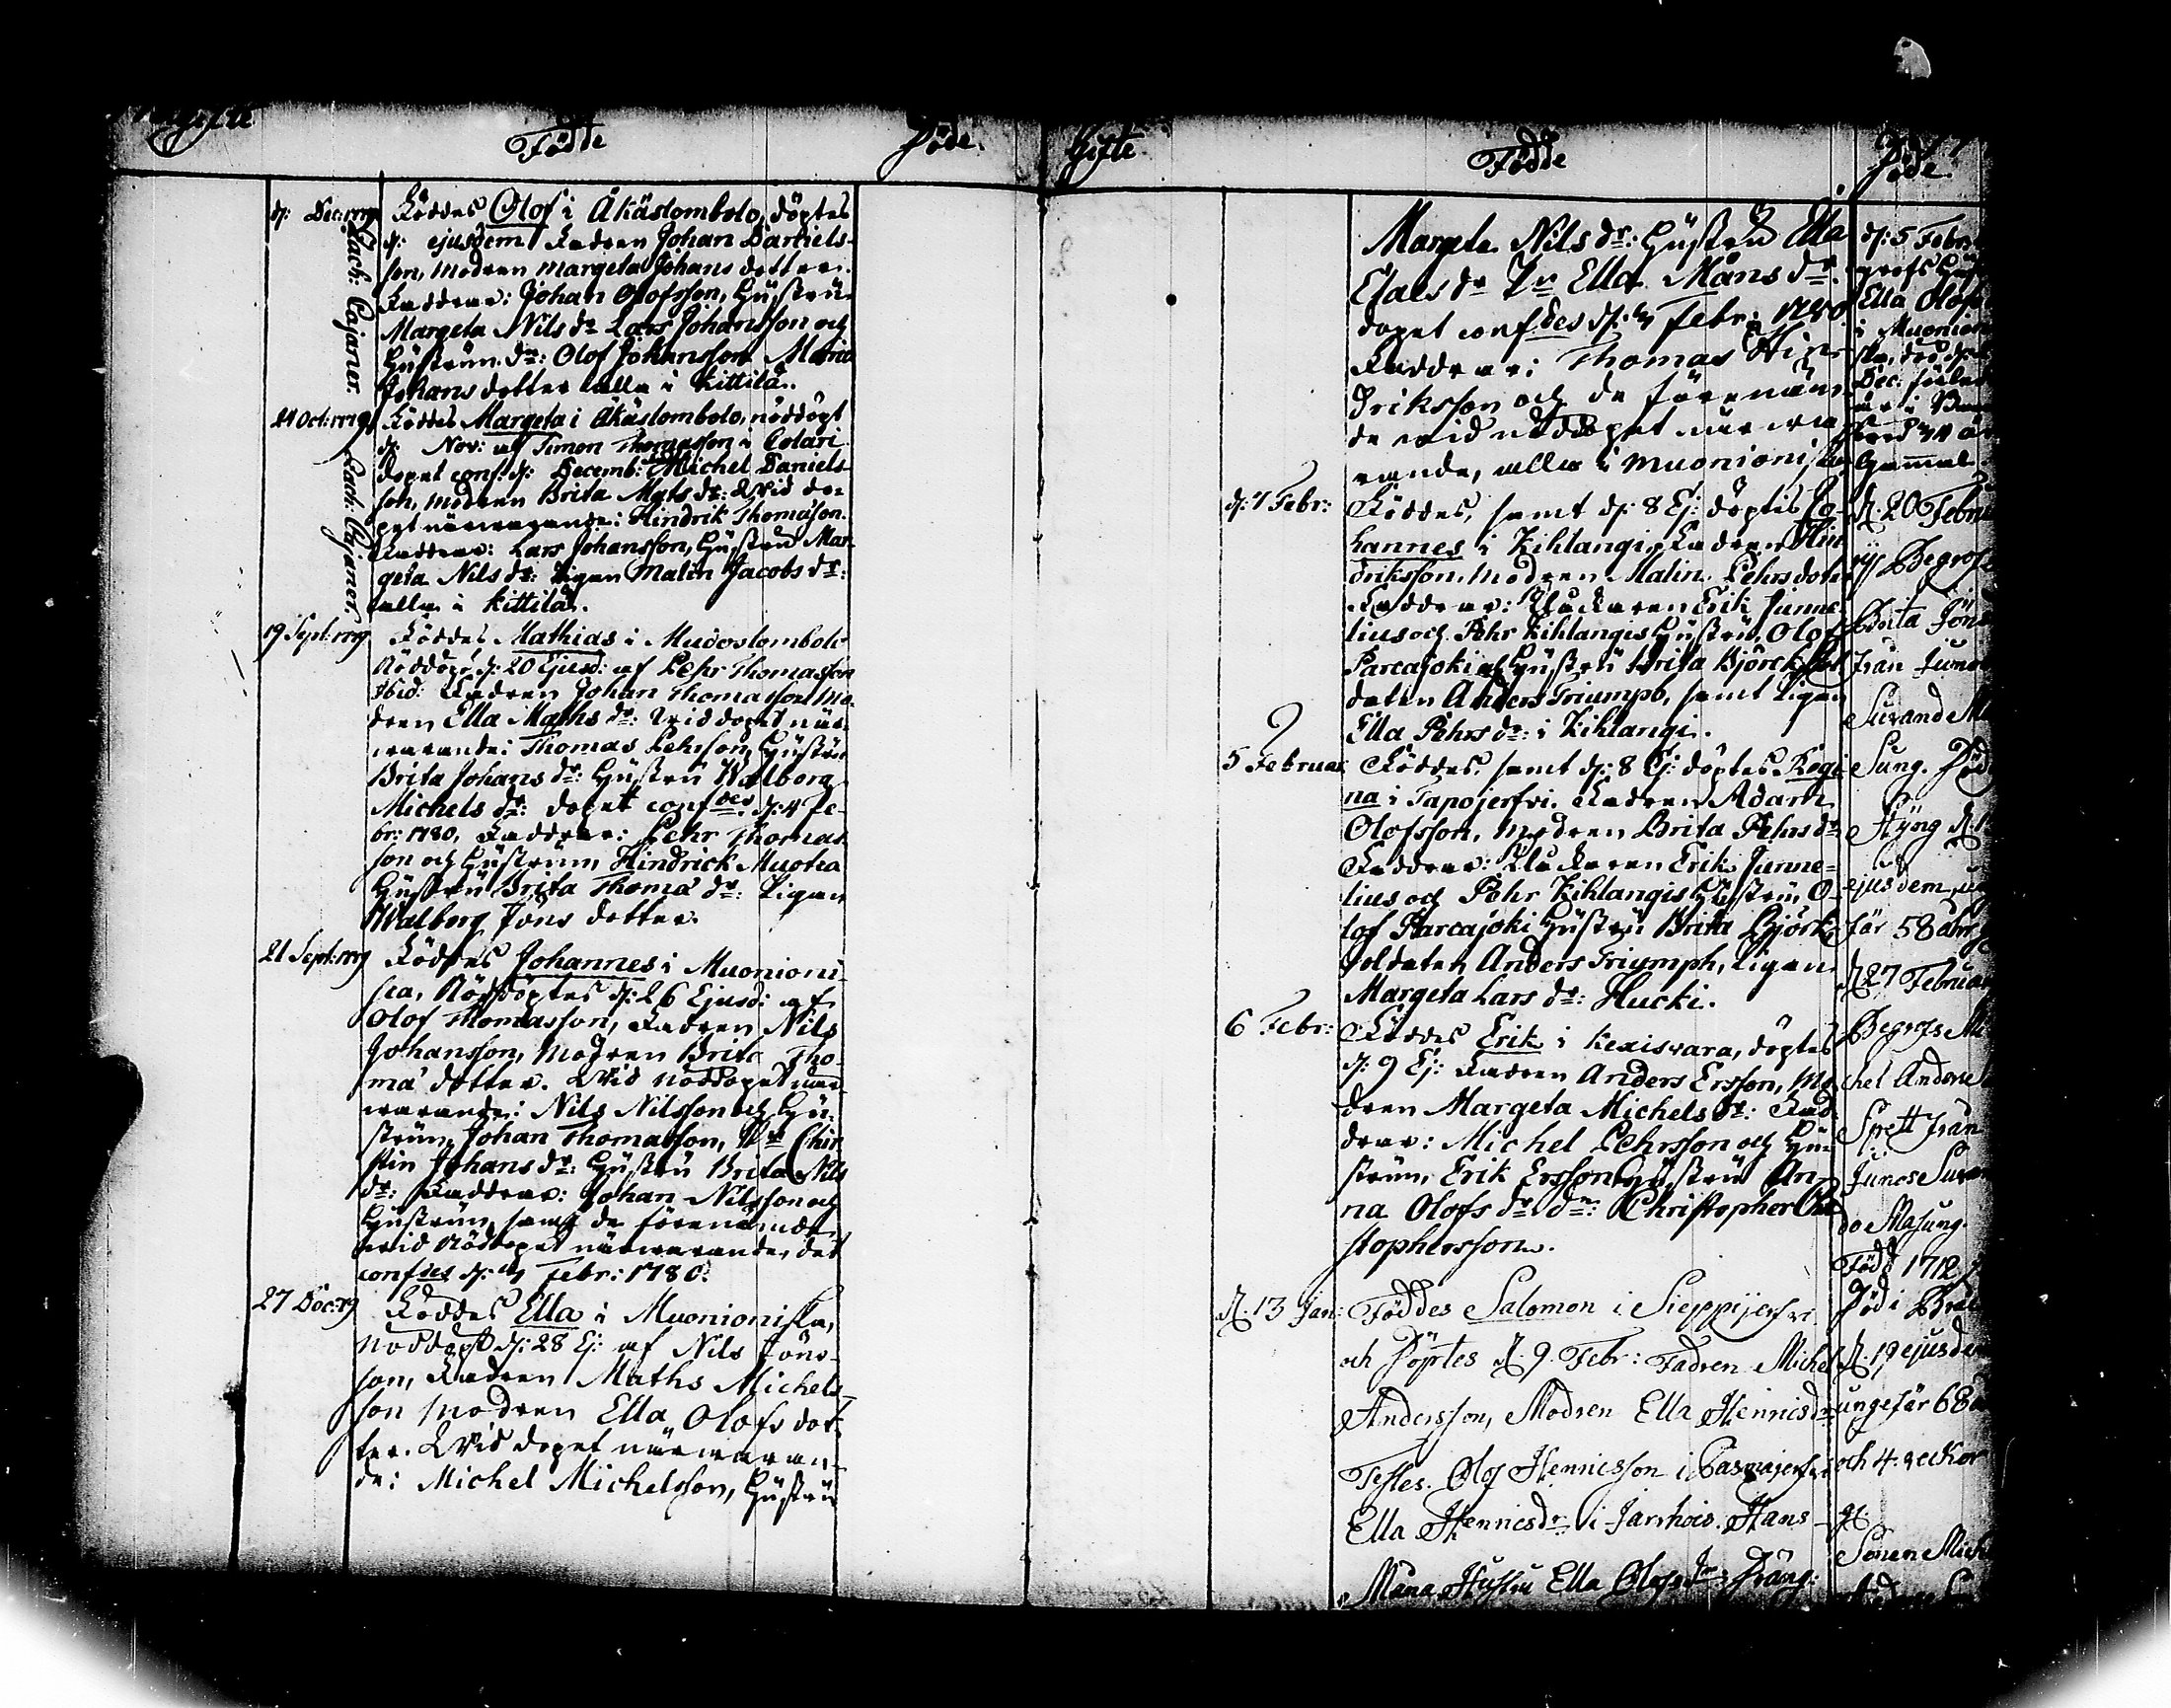 Födde
Döde.
d: Dec: 1779
Föddes Olof i Äkäslombolo, döptes
d: ejusdem Fadren Johan Daniels-
son, modren Margeta Johans dotter.
Faddrar: Johan Olofsson, Hustru
Margeta Nils dr Lars Johansson och
Hustrun. dn: Olof Johansson Maria
Johans dotter alla i Kittilä.
Zach: Cajaner.
24 Oct: 1779
Föddes Margeta i Äkäslombolo, nöddöpt
d: Nov: af Simon Thomasson i Colari
dopet conf. d: Decemb: Michel Daniels-
son, modren Brita Mats dr: Wid do-
pet närwarande: Hindrik Thomasson.
Faddrar: Lars Johansson, Hustru Mar-
geta Nils dr: Pigan Malin Jacobs dr:
alla i Kittilä.
Zach: Cajaner.
19 Sept: 1779
Föddes Mathias i Mudoslombolo
Nöddöpt d: 20 Ejusd: af Pehr Thomasson
Ibid: Fadren Johan Thomasson Mo-
dren Ella Maths dr: Wid dopet när-
warande: Thomas Pehrsson, Hustru
Brita Johans dr: Hustru Walborg
Michels dr: dopet confdes d: 4 Fe-
br: 1780, Faddrar: Pehr Thomas-
son och Hustrun, Hindrick Muotca
Hustru Brita Thoma dr: Pigan
Walborg Jöns dotter.
21 Sept: 1779
Föddes Johannes i Muonioni-
sca, Nöddöptes d: 26 Ejusd: af
Olof Thomasson, Fadren Nils
Johansson, Modren Brita Tho-
ma dotter. Wid nöddopet när-
warande: Nils Nilsson och Hu-
strun, Johan Thomasson, Chir-
stin Johans dr: Hustru Brita Nils
dr: Faddrar: Johan Nilsson och
Hustrun, samt de förenämde
wid Nöddopet närwarande, det
confdes d: Febr: 1780.
27 Dec: 79
Föddes Ella i Muonioniska,
nöddöpt d: 28 Ej: af Nils Jöns-
son, Fadren Maths Michels-
son Modren Ella Olofs dot-
ter. Wid dopet närwaran-
de: Michel Michelsson, Hustru
Gifte
Födde
Döde.
Margeta Nils dr: Hustru Ella
Esaes dr Ella Måns dr:
dopet confdes d: Febr: 1780
Faddrar: Thomas Hin-
driksson och de förenäm-
de wid nöddopet närwa-
rande, alla i Muonioniska
d: 7 Febr:
Föddes, samt d: 8 Ej: döptes Jo-
hannes i Kihlangi, Fadren Hin-
driksson, modren Malin Pehrs dotter
Faddrar: Klockaren Erik Junne-
lius och Pehr Kihlangis Hustru, Olof
Parcajoki och Hustru Brita Björck Sol-
daten Anders Triumph, samt Pigan
Ella Pehrs dr: i Kihlangi.
5 Februar
Föddes, samt d: 8 Ej: döptes Regi-
na i Tapojerfvi. Fadren Adam
Olofsson, modren Brita Pehrs dr
Faddrar: Klockaren Erik Junne-
lius och Pehr Kihlangis Hustru, O-
lof Parcajoki Hustru Brita Björk
Soldaten Anders Triumph, Pigan
Margeta Lars dr: Hucki.
6 Febr:
Föddes Erik i Kexisvara, döptes
d: 9 Ej: Fadren Anders Ersson, Mo-
dren Margeta Michels dr: Fad-
drar: Michel Pehrsson och Hu-
strun, Erik Ersson Hustru An-
na Olofs dr dn: Christopher Chri-
stophersson.
d. 13 Jan:
Föddes Salomon i Sieppijerfvi
och Döptes d. 9. Febr: Fadren Michel
Andersson, Modren Ella Hennicsdr
Testes. Olof Hennicsson i Pasmajerfvi
Ella Hennicsdr i Jarrhois. Hans
Måna Hustru Ella Olofsdr: Dräng:
d: 5 Febru
grofs Hust
Ella Olofs
i Muonion
ska, död d:
Dec.
Gammal
d. 20 Febru
rij Begrofs
Brita Jöns
från Juno
Suvando
Sung. Död
Styng d.
ejusdem, un
för 58 åhr
d. 27 Februa
Begrofs Mi
chel Anders
Spett från
Junos Suvan
do Masung.
Född 1712
Död i Brå
d. 19 ejusdem
ungefär 68
och 4. veckor
d.
Sonen Mich